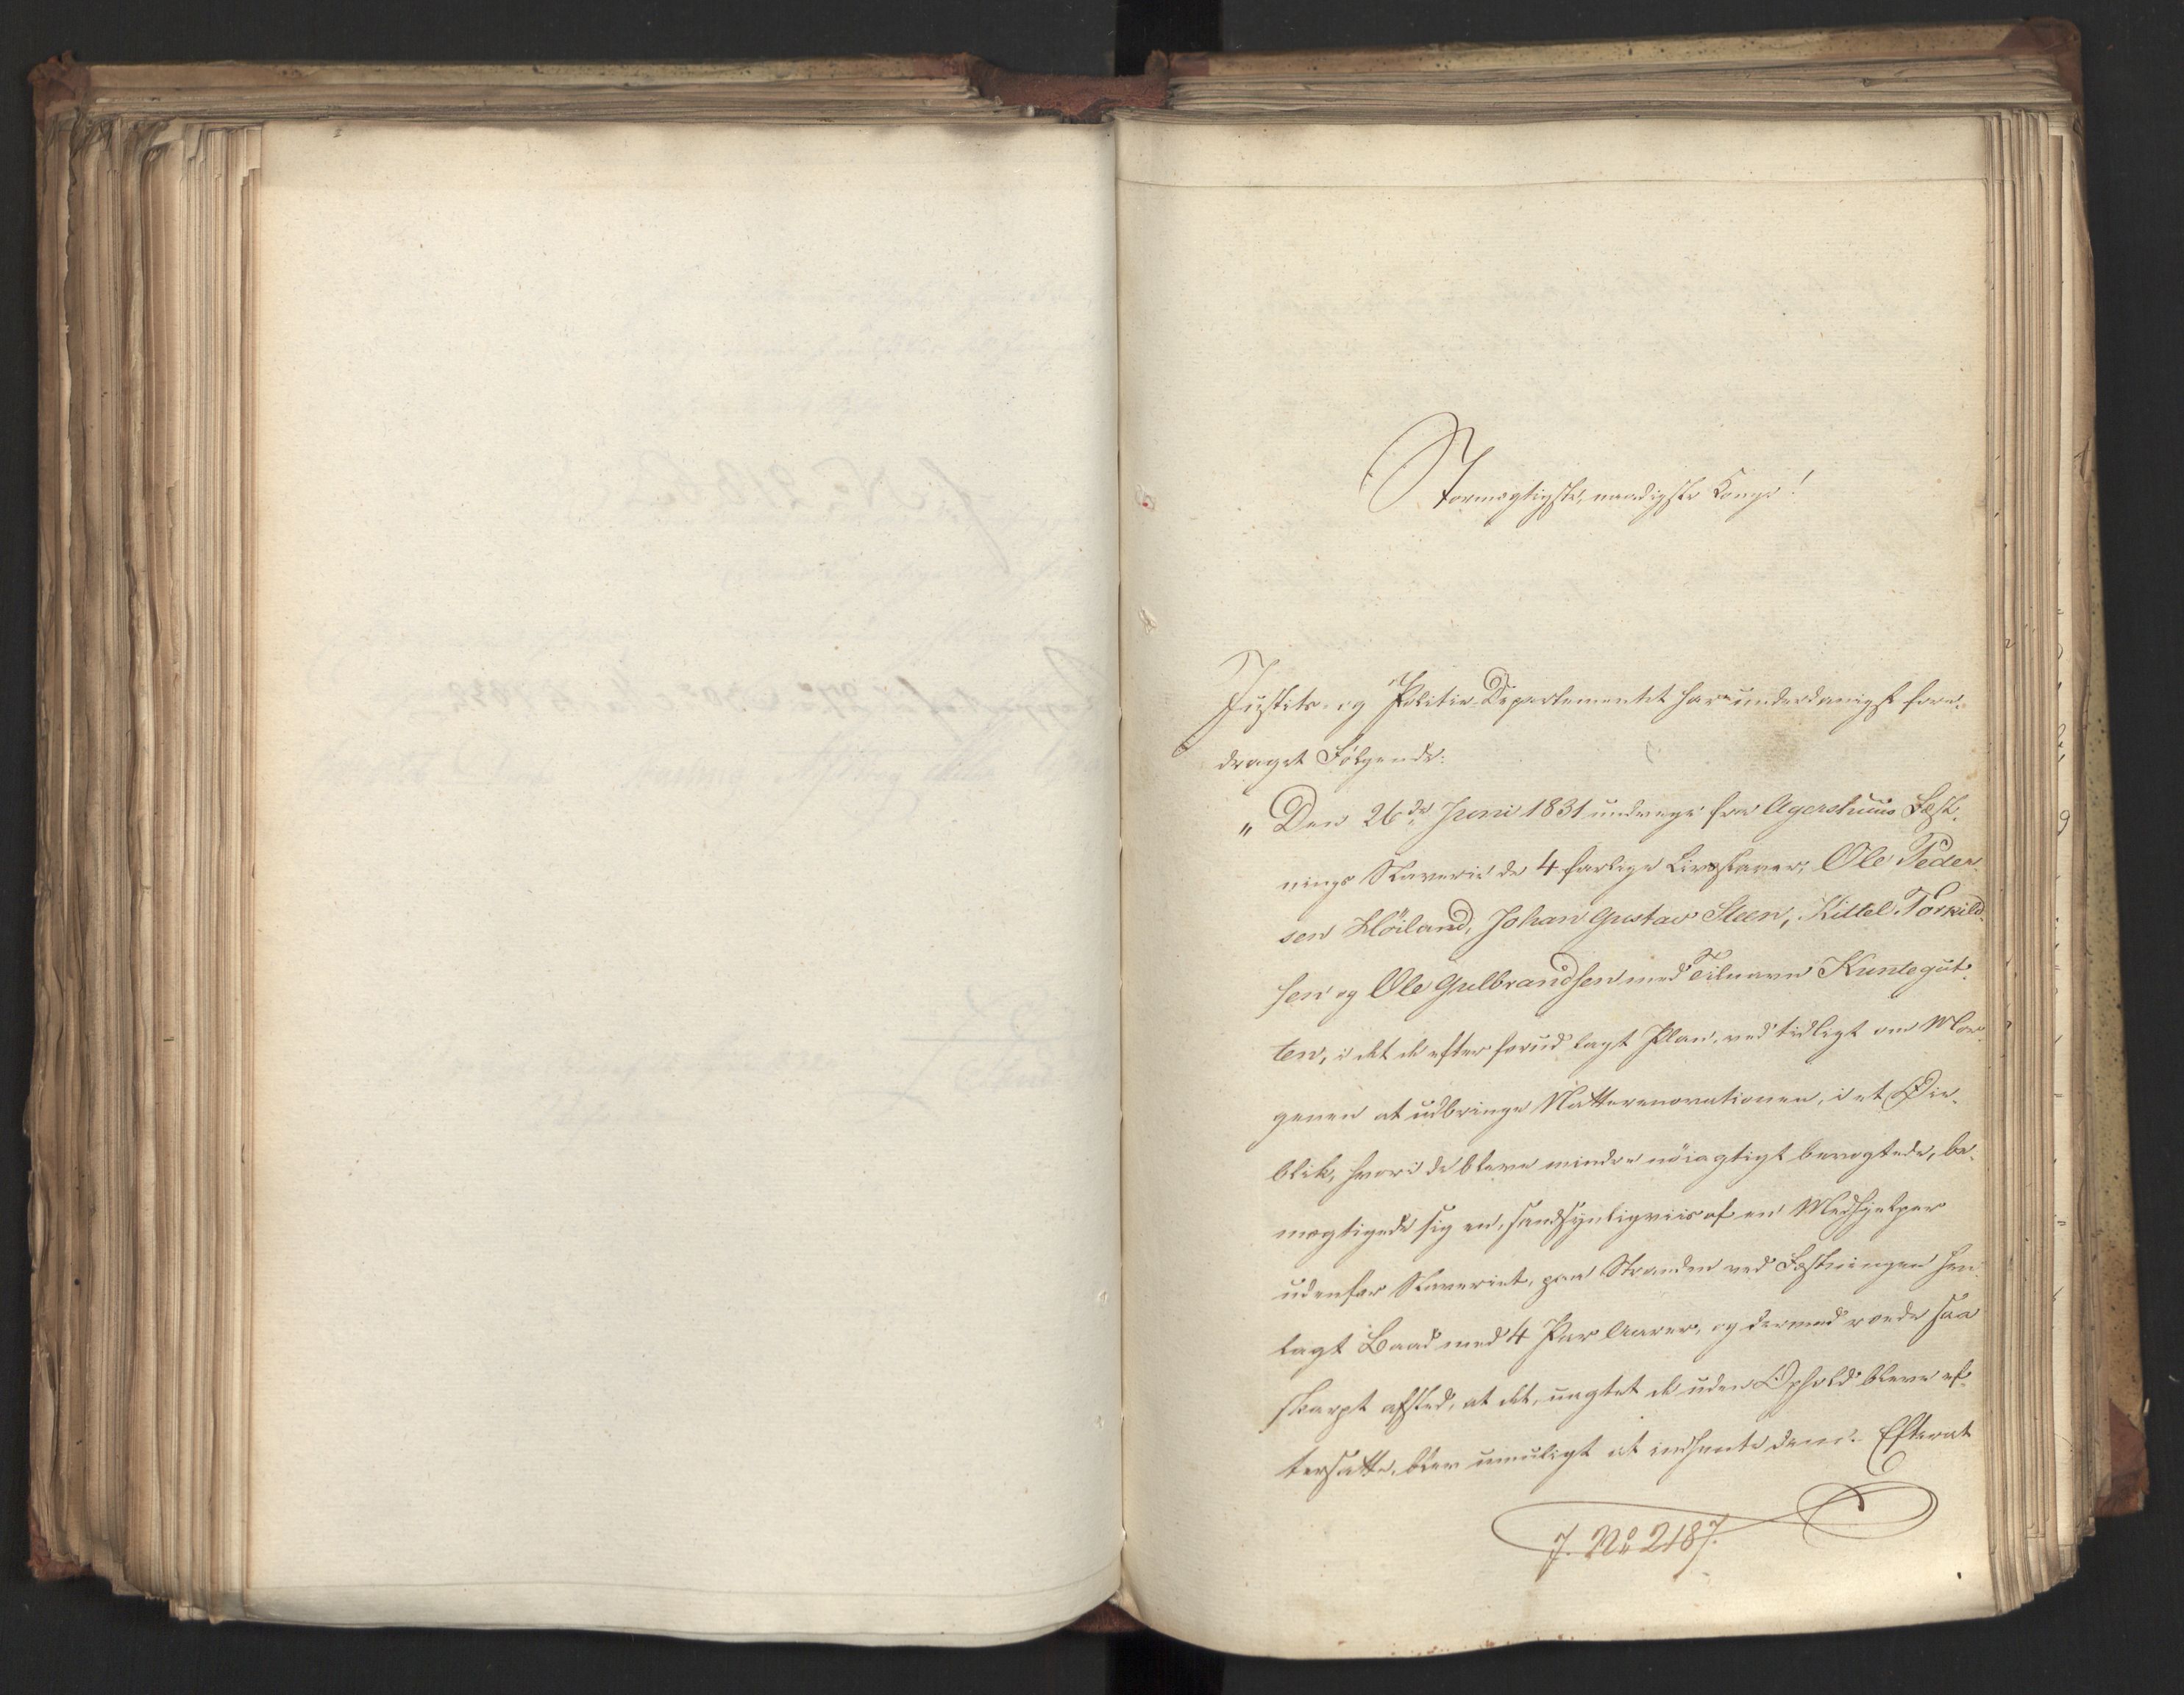 Stormægtigste, naadigste Konge!
Justits- og Politie-Departementet har underdanigst fore-
draget Følgende:
„Den 26de Juni 1831 undvege fra Agershuus Fæst-
nings Slaverie de 4 farlige Livsslaver, Ole Peder-
sen Höiland, Johan Gustav Steen, Kittel Torkild-
sen og Ole Gulbrandsen med Tilnavn Kuntegut-
ten, i det de efter forud lagt Plan, ved tidligt om Mor-
genen at udbringe Natterenovationen, i et Øie-
blik, hvori de bleve mindre nöiagtigt bevogtede, be-
mægtigede sig en, sandsynligviis af en Medhjelper
udenfor Slaveriet, paa Stranden ved Fæstningen hen-
lagt Baad med 4 Par Aarer, og dermed roede saa
skarpt afsted, at det, uagtet de uden Ophold bleve ef-
tersatte, blev umuligt at indhente dem. Efterat
J. No 2187.